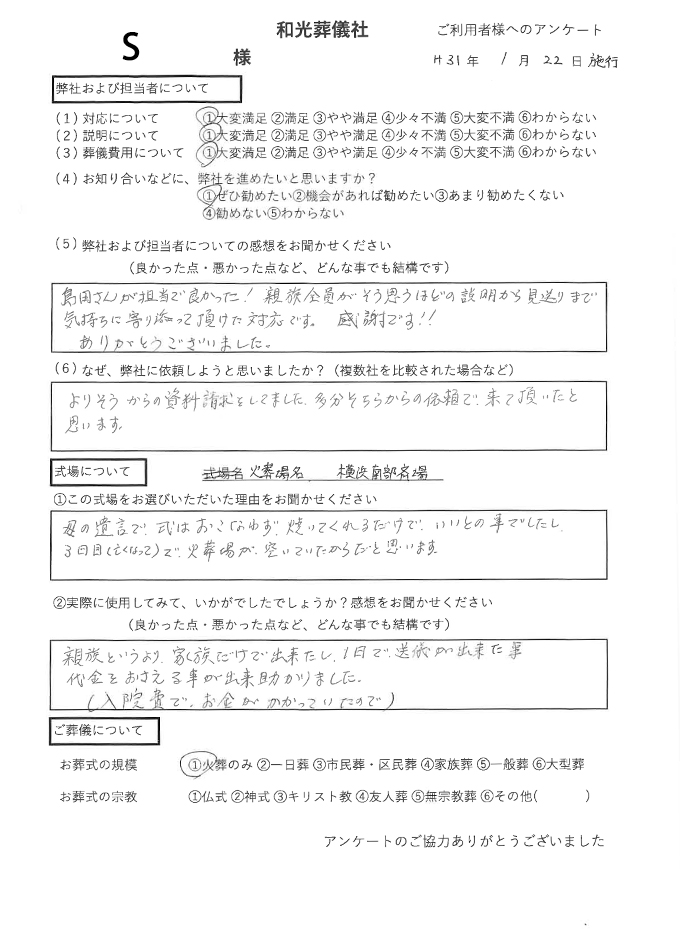 和光葬儀社
ご利用者様へのアンケート
S 様
H31年 1月 22日 施行
弊社および担当者について
(1) 対応について ①大変満足 ②満足 ③やや満足 ④少々不満 ⑤大変不満 ⑥わからない
(2) 説明について ①大変満足 ②満足 ③やや満足 ④少々不満 ⑤大変不満 ⑥わからない
(3) 葬儀費用について ①大変満足 ②満足 ③やや満足 ④少々不満 ⑤大変不満 ⑥わからない
(4) お知り合いなどに、弊社を進めたいと思いますか？
①ぜひ勧めたい②機会があれば勧めたい③あまり勧めたくない
④勧めない⑤わからない
(5) 弊社および担当者についての感想をお聞かせください
（良かった点・悪かった点など、どんな事でも結構です）
島田さんが担当で良かった！ 親族全員がそう思うほどの説明から見送りまで
気持ちに寄り添って頂けた対応です。 感謝です！！
ありがとうございました。
(6) なぜ、弊社に依頼しようと思いましたか？（複数社を比較された場合など）
よりそうからの資料請求をしてました。多分そちらからの依頼で、来て頂いたと
思います。
式場について
式場名 火葬場名 横浜南部斎場
①この式場をお選びいただいた理由をお聞かせください
母の遺言で、式はおこなわず、焼いてくれるだけで、いいとの事でしたし、
3日目(亡くなって)で、火葬場が、空いていたからだと思います。
②実際に使用してみて、いかがでしたでしょうか？感想をお聞かせください
（良かった点・悪かった点など、どんな事でも結構です）
親族というより、家族だけで出来たし、1日で、送儀が出来た事
代金をおさえる事が出来助かりました。
(入院費で、お金がかかっていたので)
ご葬儀について
お葬式の規模 ①火葬のみ ②一日葬 ③市民葬・区民葬 ④家族葬 ⑤一般葬 ⑥大型葬
お葬式の宗教 ①仏式 ②神式 ③キリスト教 ④友人葬 ⑤無宗教葬 ⑥その他( )
アンケートのご協力ありがとうございました